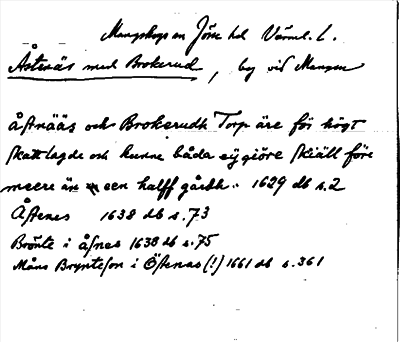 Mangskogs sn Jösse hd Värml. L.
Åstenäs med Brokerud, by vid Mangen
åstnääs och Brokerudh Torp äre för högt
skattlagde och kunne båda eÿ giöre skiäll före
meere än een halff gårdh. 1629 db s. 2
Åstenes 1638 db s. 73
Brönte i åsnes 1638 db s. 75
Måns Bryntesson i Östenas (!) 1661 db s. 361